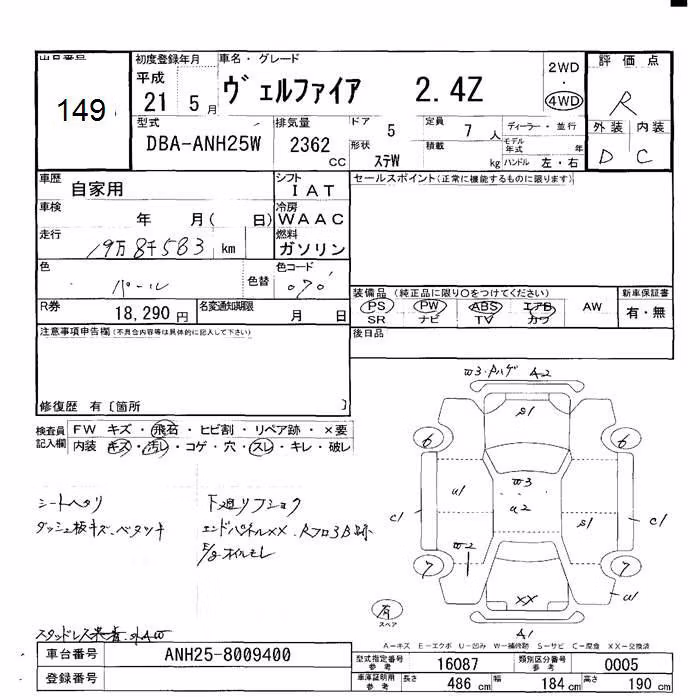 出品番号
149
初度登録年月
平成
21 5 月
車名・グレード
ヴェルファイア 2.4Z
2WD
・
4WD
評価点
R
外装 内装
D C
型式
DBA-ANH25W
排気量
2362
CC
ドア
5
形状
ステW
定員
7 人
積載
kg
ディーラー・並行
モデル年式 年
ハンドル 左・右
車歴
自家用
シフト
IAT
車検
年 月( 日)
冷房
WAAC
走行
19万8千583 km
燃料
ガソリン
色
パール
色替
色コード
070
R券
18,290 円
名変通知期限
月 日
セールスポイント(正常に機能するものに限ります)
装備品 (純正品に限り○をつけてください)
PS PW ABS エアB AW
SR ナビ TV カワ
新車保証書
有・無
後日品
注意事項申告欄(不具合内容等は具体的に記入して下さい)
修復歴 有〔箇所 〕
検査員記入欄
FW キズ・飛石・ヒビ割・リペア跡・×要
内装 キズ・汚レ・コゲ・穴・スレ・キレ・破レ
シートヘタリ
ダッシュ板キズ・ベタツキ
下廻リフショク
エンドパネルXX、Rフロ3B跡
E/gオイルモレ
W3・Pハゲ A2
S1
6 6
W3
U1 U2 S1
C1 C1
7 7
W2
XX
U1
A1
有
スペア
スタッドレス 装着、外AW
A−キズ E−エクボ U−凹み W−補修跡 S−サビ C−腐食 XX−交換済
車台番号
ANH25-8009400
登録番号
型式指定番号
参考
16087
類別区分番号
参考
0005
車庫証明用
参考
長さ 486 cm
幅 184 cm
高さ 190 cm